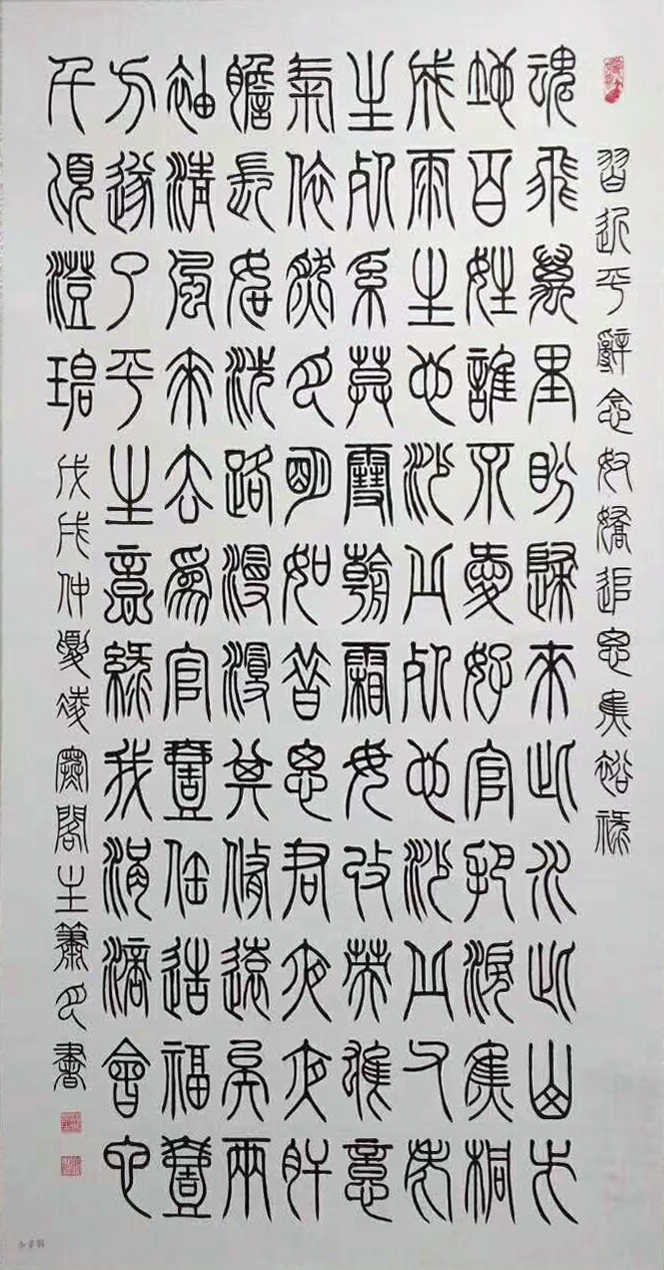 習近平辭念奴嬌追思焦裕祿
魂飛萬里盼歸來此水此山此
地百姓誰不愛好官把淚焦桐
成雨生也沙丘死也沙丘父老
生死系莫雪朝霜毋改英雄意
氣依然月明如昔思君夜夜肝
膽長如洗路漫漫其修遠矣兩
袖清風來去為官壹任造福壹
方遂了平生意綠我涓滴會它
千頃澄碧
戊戌仲夏凌寒閣主簫月書